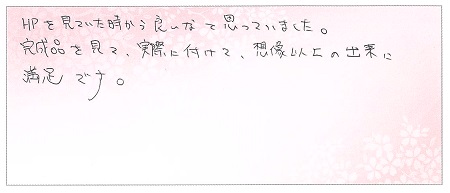 HPを見ていた時から良いなて思っていました。
完成品を見て、実際に付けて、想像以上の出来に
満足です。